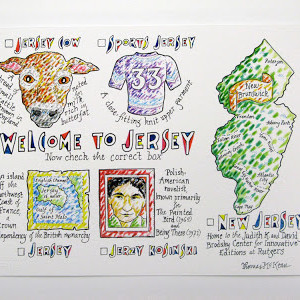 JERSEY COW
SPORTS JERSEY
33
A close fitting knit upper garment
noted for milk rich in butterfat
Paterson
New Brunswick
Asbury Park
Trenton
WELCOME TO JERSEY
Now check the correct box
An island off the northwest coast of France, a Crown dependency of the British monarchy
English Channel
Gulf of Saint Malo
JERSEY
Polish-American novelist, known primarily for The Painted Bird (1965) and Being There (1971)
JERZY KOSINSKI
NEW JERSEY
Home to the Judith K. and David Brodsky Center for Innovative Editions at Rutgers